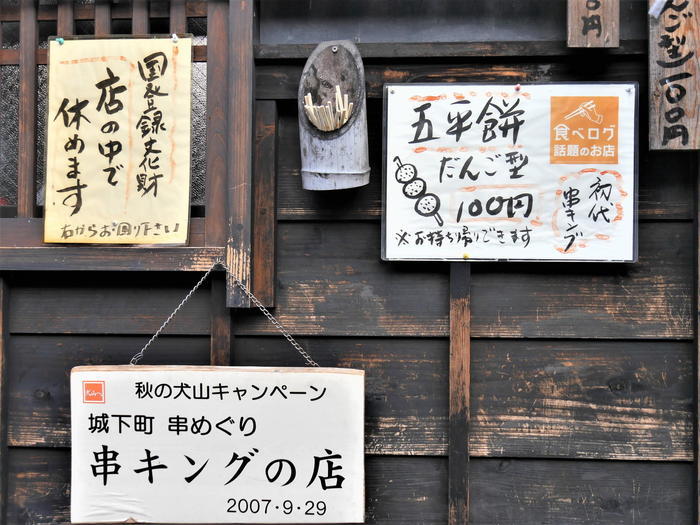 国登録文化財
店の中で
休めます
右からお回り下さい
五平餅
だんご型
100円
※お持ち帰りできます
食べログ
話題のお店
初代
串キング
円
んご型一〇〇円
秋の犬山キャンペーン
城下町 串めぐり
串キングの店
2007・9・29